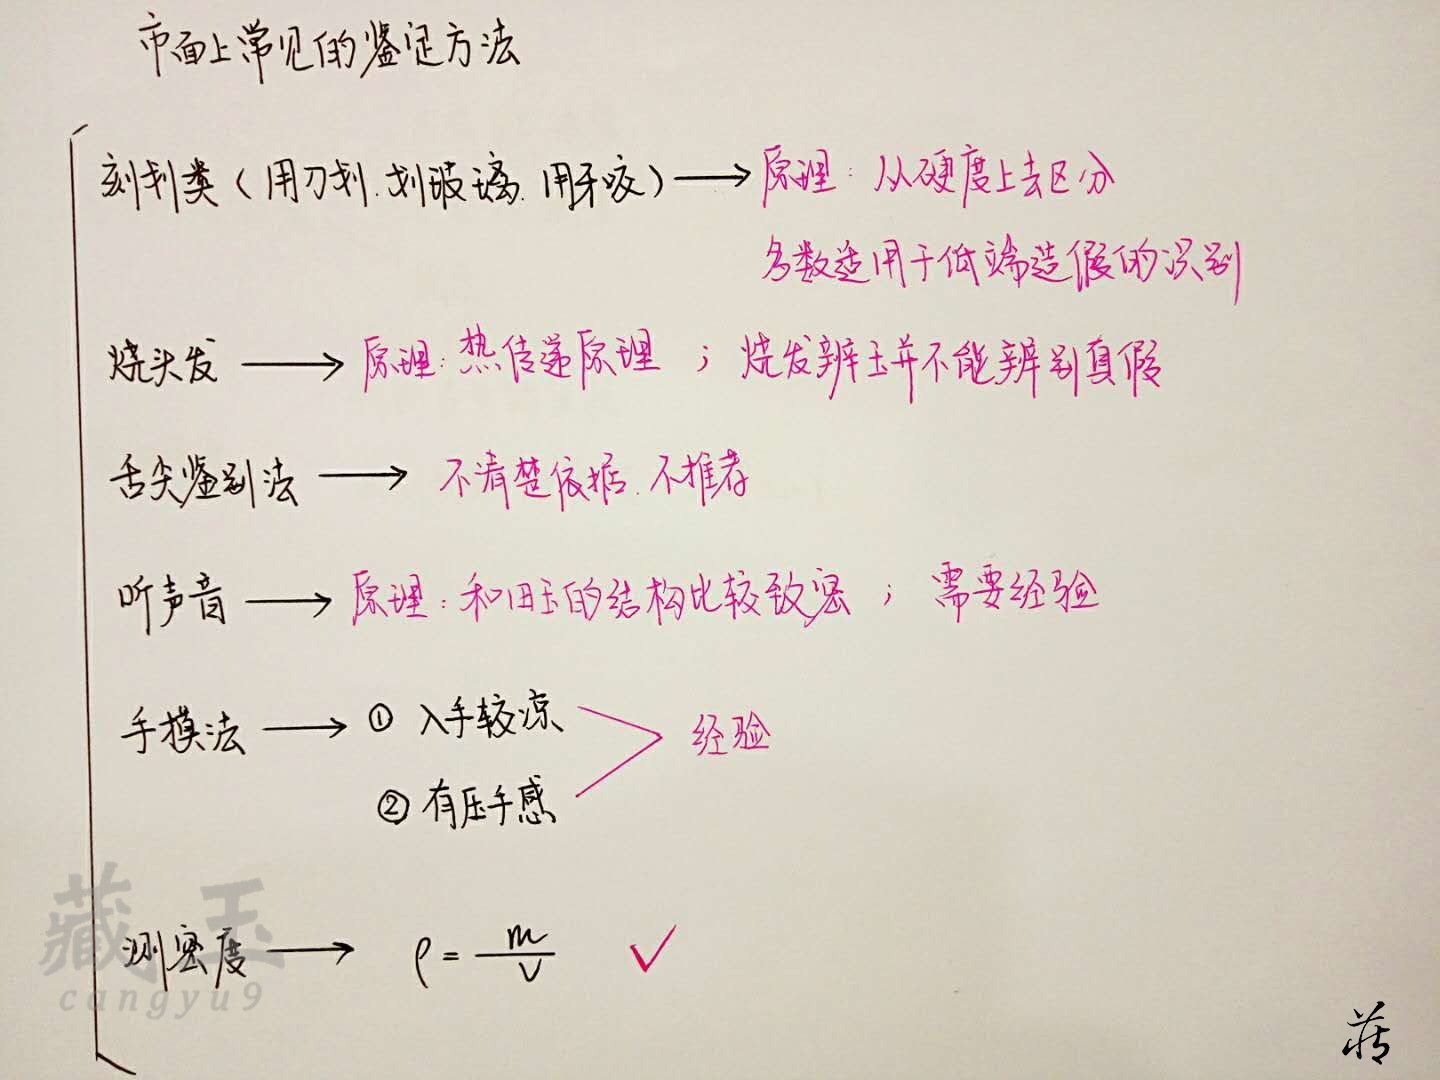 市面上常见的鉴定方法
刻划类（用刀划.划玻璃.用牙咬）→原理：从硬度上去区分
多数适用于低端造假的识别
烧头发→原理：热传递原理；烧发辨玉并不能辨别真假
舌尖鉴别法→不清楚依据.不推荐
听声音→原理：和田玉的结构比较致密；需要经验
手摸法→①入手较凉
经验
②有压手感
藏玉
测密度→ρ=m/V ✓
cangyu9